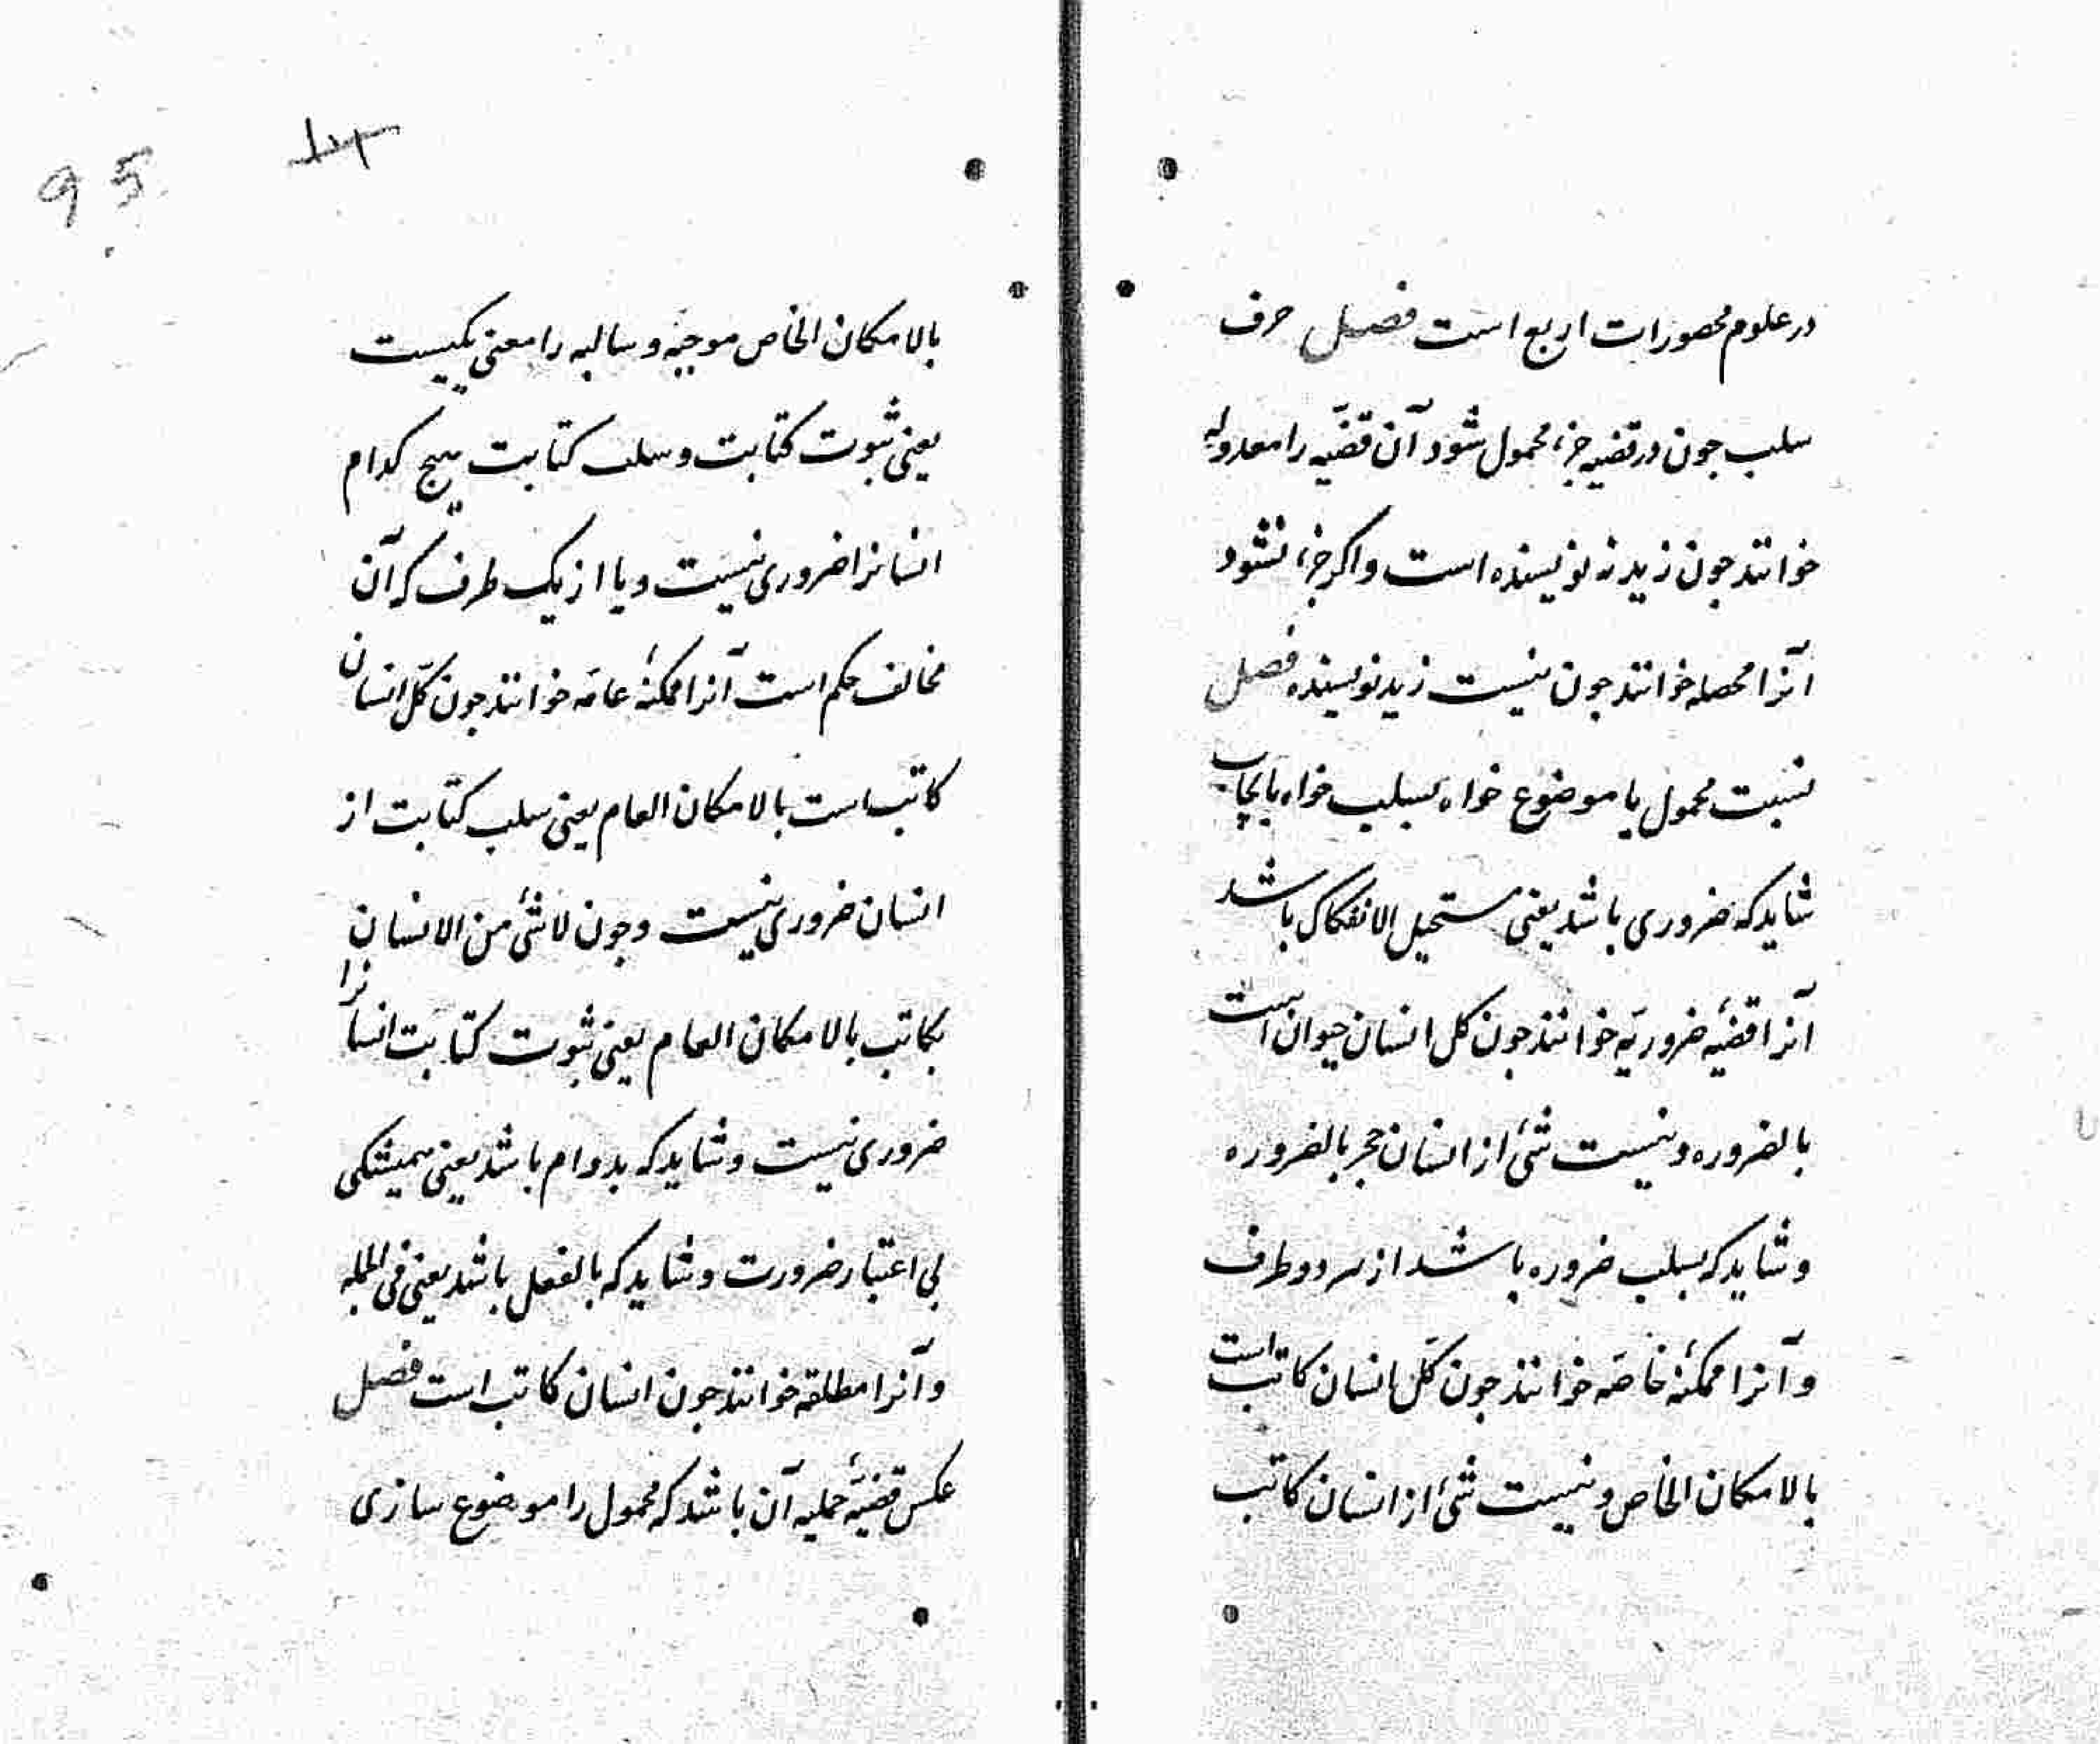 در علوم محصورات اربع است فصل حرف
سلب جون در قضیه جزء محمول شود آن قضیّه را معدوله
خوانند جون زید نه نویسنده است و اکر جزء نشود
آنرا محصله خوانند جون نیست زید نویسنده فصل
نسبت محمول با موضوع خواه بسلب خواه بایجاب
شاید که ضروری باشد یعنی مستحیل الانفکاک باشد
آنرا قضیهٔ ضروریّه خوانند جون کل انسان حیوان است
بالضروره و نیست شئ از انسان حجر بالضروره
و شاید که بسلب ضروره باشد از هر دو طرف
و آنرا ممکنهٔ خاصّه خوانند جون کلّ انسان کاتب است
بالامکان الخاص و نیست شئ از انسان کاتب
95
بالامکان الخاص موجبه و سالبه را معنی یکیست
یعنی ثبوت کتابت و سلب کتابت هیج کدام
انسانرا ضروری نیست و یا از یک طرف که آن
مخالف حکم است آنرا ممکنهٔ عامّه خوانند جون کلّ انسان
کاتب است بالامکان العام یعنی سلب کتابت از
انسان ضروری نیست و جون لا شئ من الانسان
بکاتب بالامکان العام یعنی ثبوت کتابت انسانرا
ضروری نیست و شاید که بدوام باشد یعنی همیشکی
بی اعتبار ضرورت و شاید که بالفعل باشد یعنی فی الجمله
و آنرا مطلقه خوانند جون انسان کاتب است فصل
عکس قضیّهٔ حملیه آن باشد که محمول را موضوع سازی